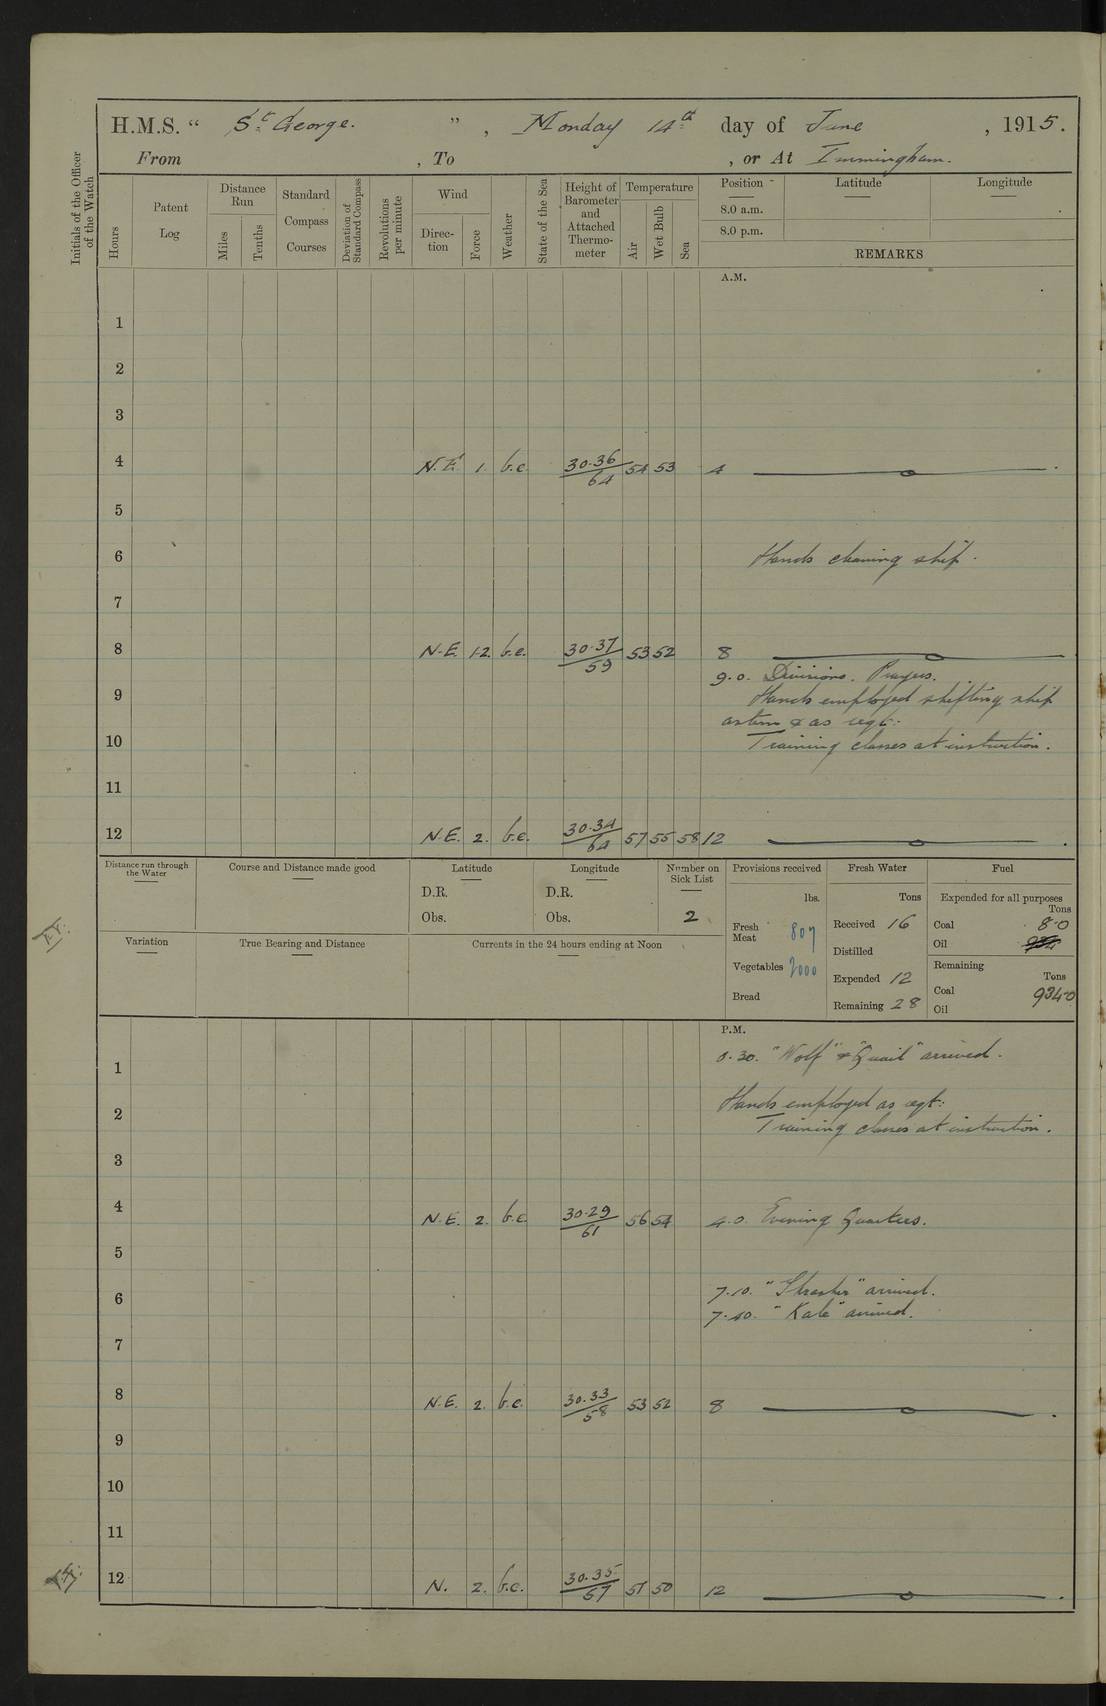 H.M.S. “ St. George. ” , Monday 14th day of June , 1915.
From , To , or At Immingham.
Initials of the Officer of the Watch
Hours
Patent Log
Distance Run
Miles
Tenths
Standard Compass Courses
Deviation of Standard Compass
Revolutions per minute
Wind
Direction
Force
Weather
State of the Sea
Height of Barometer and Attached Thermometer
Temperature
Air
Wet Bulb
Sea
Position Latitude Longitude
8.0 a.m.
8.0 p.m.
REMARKS
A.M.
1
2
3
4 N.E. 1. b.c. 30.36/64 54 53 4
5
6 Hands cleaning ship.
7
8 N.E. 1-2. b.c. 30.37/59 53 52 8
9.0. Divisions. Prayers.
9 Hands employed shifting ship
astern & as reqt:
10 Training classes at instruction.
11
12 N.E. 2. b.c. 30.34/64 57 55 58 12
Distance run through the Water
Course and Distance made good
Latitude
D.R.
Obs.
Longitude
D.R.
Obs.
Number on Sick List
2
Provisions received
lbs.
Fresh Meat 807
Vegetables 2000
Bread
Fresh Water
Tons
Received 16
Distilled
Expended 12
Remaining 28
Fuel
Expended for all purposes
Tons
Coal 8.0
Oil
Remaining
Tons
Coal 934.0
Oil
Variation
True Bearing and Distance
Currents in the 24 hours ending at Noon
P.M.
0.30. "Wolf" & "Quail" arrived.
1
Hands employed as reqt:
2
Training classes at instruction.
3
4 N.E. 2. b.c. 30.29/61 56 54 4.0. Evening Quarters.
5
7.10. "Thrasher" arrived.
6
7.40. "Kale" arrived.
7
8 N.E. 2. b.c. 30.33/58 53 52 8
9
10
11
12 N. 2. b.c. 30.35/57 51 50 12